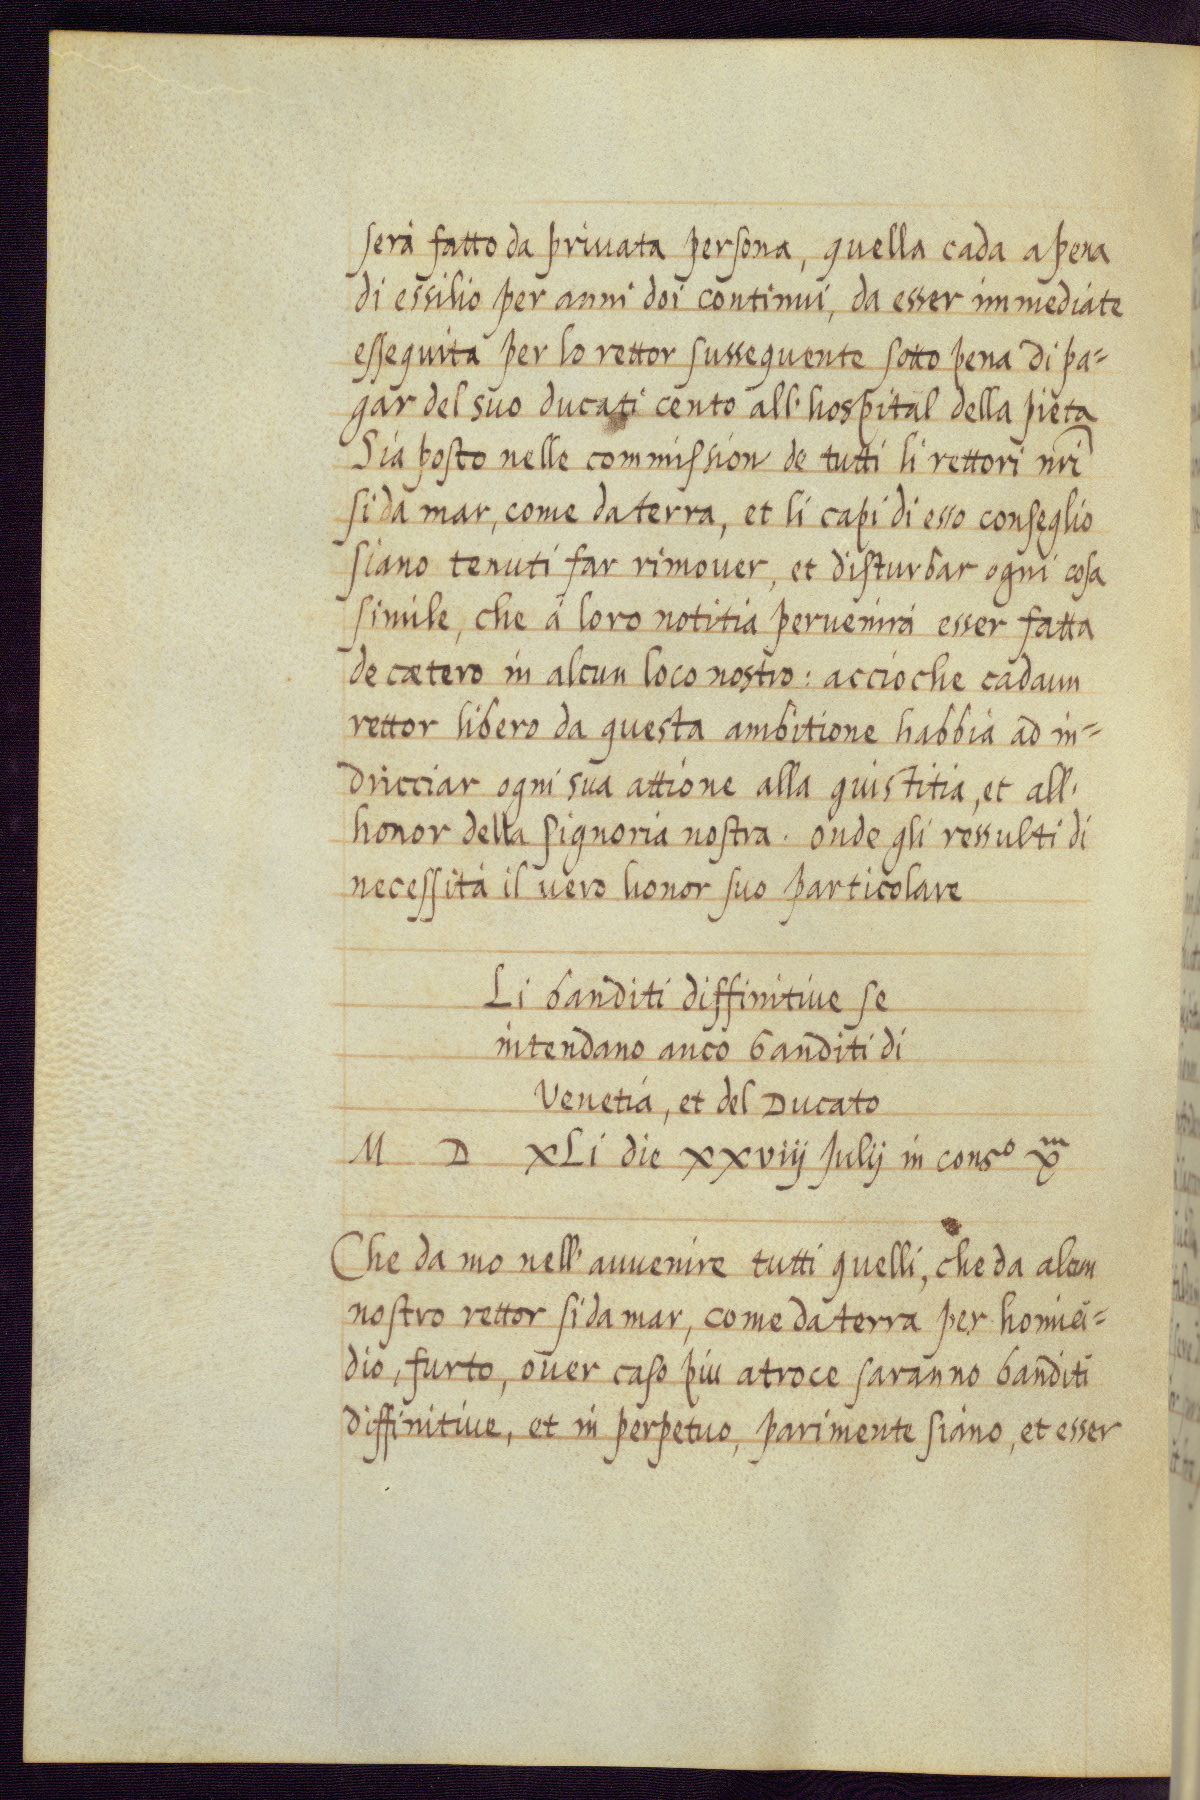 serà fatto da privata persona, quella cada a pena
di essilio per anni doi continui, da esser immediate
essequita per lo rettor sussequente sotto pena di pa-
gar del suo ducati cento all'hospital della pieta
Sia posto nelle commission de tutti li rettori nri
si da mar, come da terra, et li capi di esso conseglio
siano tenuti far rimover, et disturbar ogni cosa
simile, che à loro notitia pervenirà esser fatta
de cætero in alcun loco nostro: accioche cadaun
rettor libero da questa ambitione habbia ad in-
dricciar ogni sua attione alla guistitia, et all'
honor della Signoria nostra. onde gli ressulti di
necessità il vero honor suo particolare
Li banditi diffinitive se
intendano anco banditi di
Venetia, et del Ducato
M D XLi die xxviij Julij in cons.o X.m
Che da mo nell'avvenire tutti quelli, che da alcun
nostro rettor si da mar, come da terra per homici-
dio, furto, over caso piu atroce saranno banditi
diffinitive, et in perpetuo, parimente siano, et esser